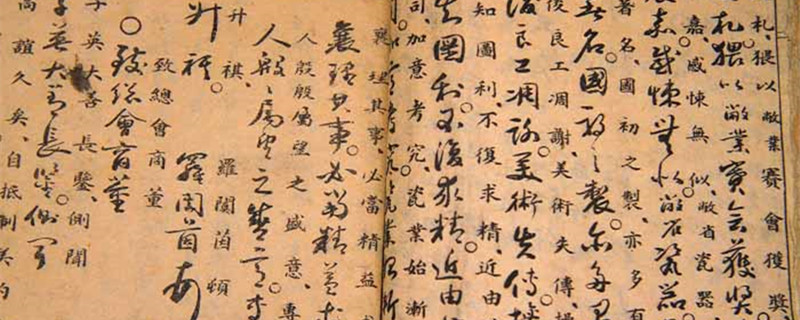 札、猥以敝業賽會獲獎、
札。猥以敝業賽會獲獎
嘉、感悚無似、敝省瓷器、
嘉感悚無似。敝省瓷器
著名、國初之製、亦多有
著名。國初之製。亦多
後良工凋謝、美術失傳、操
後良工凋謝。美術失傳。
知圖利、不復求精、近由
知圖利。不復求精。近由
司、加意考究、瓷業始漸
加意考究瓷業
襄理其事、必當精益求
襄理其事。必當精益求
人殷殷屬望之盛意、專
人殷殷屬望之盛意。專
升祺、羅閏茵頓
升祺。羅閏茵
致總會商董
〇致總會商董
子英大善長鑒、側聞
子英大善長鑒。側聞
高誼久矣、自抵制美約